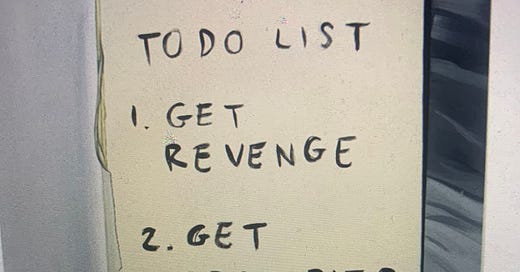 TO DO LIST
1. GET
REVENGE
2. GET